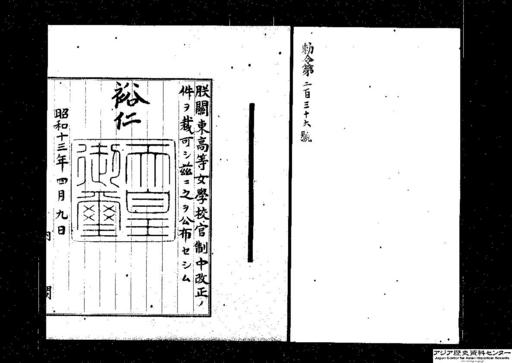 勅令第二百三十六號
朕關東高等女學校官制中改正ノ
件ヲ裁可シ茲ニ之ヲ公布セシム
裕仁
天皇
御璽
昭和十三年四月九日
内閣
アジア歴史資料センター
Japan Center for Asian Historical Records